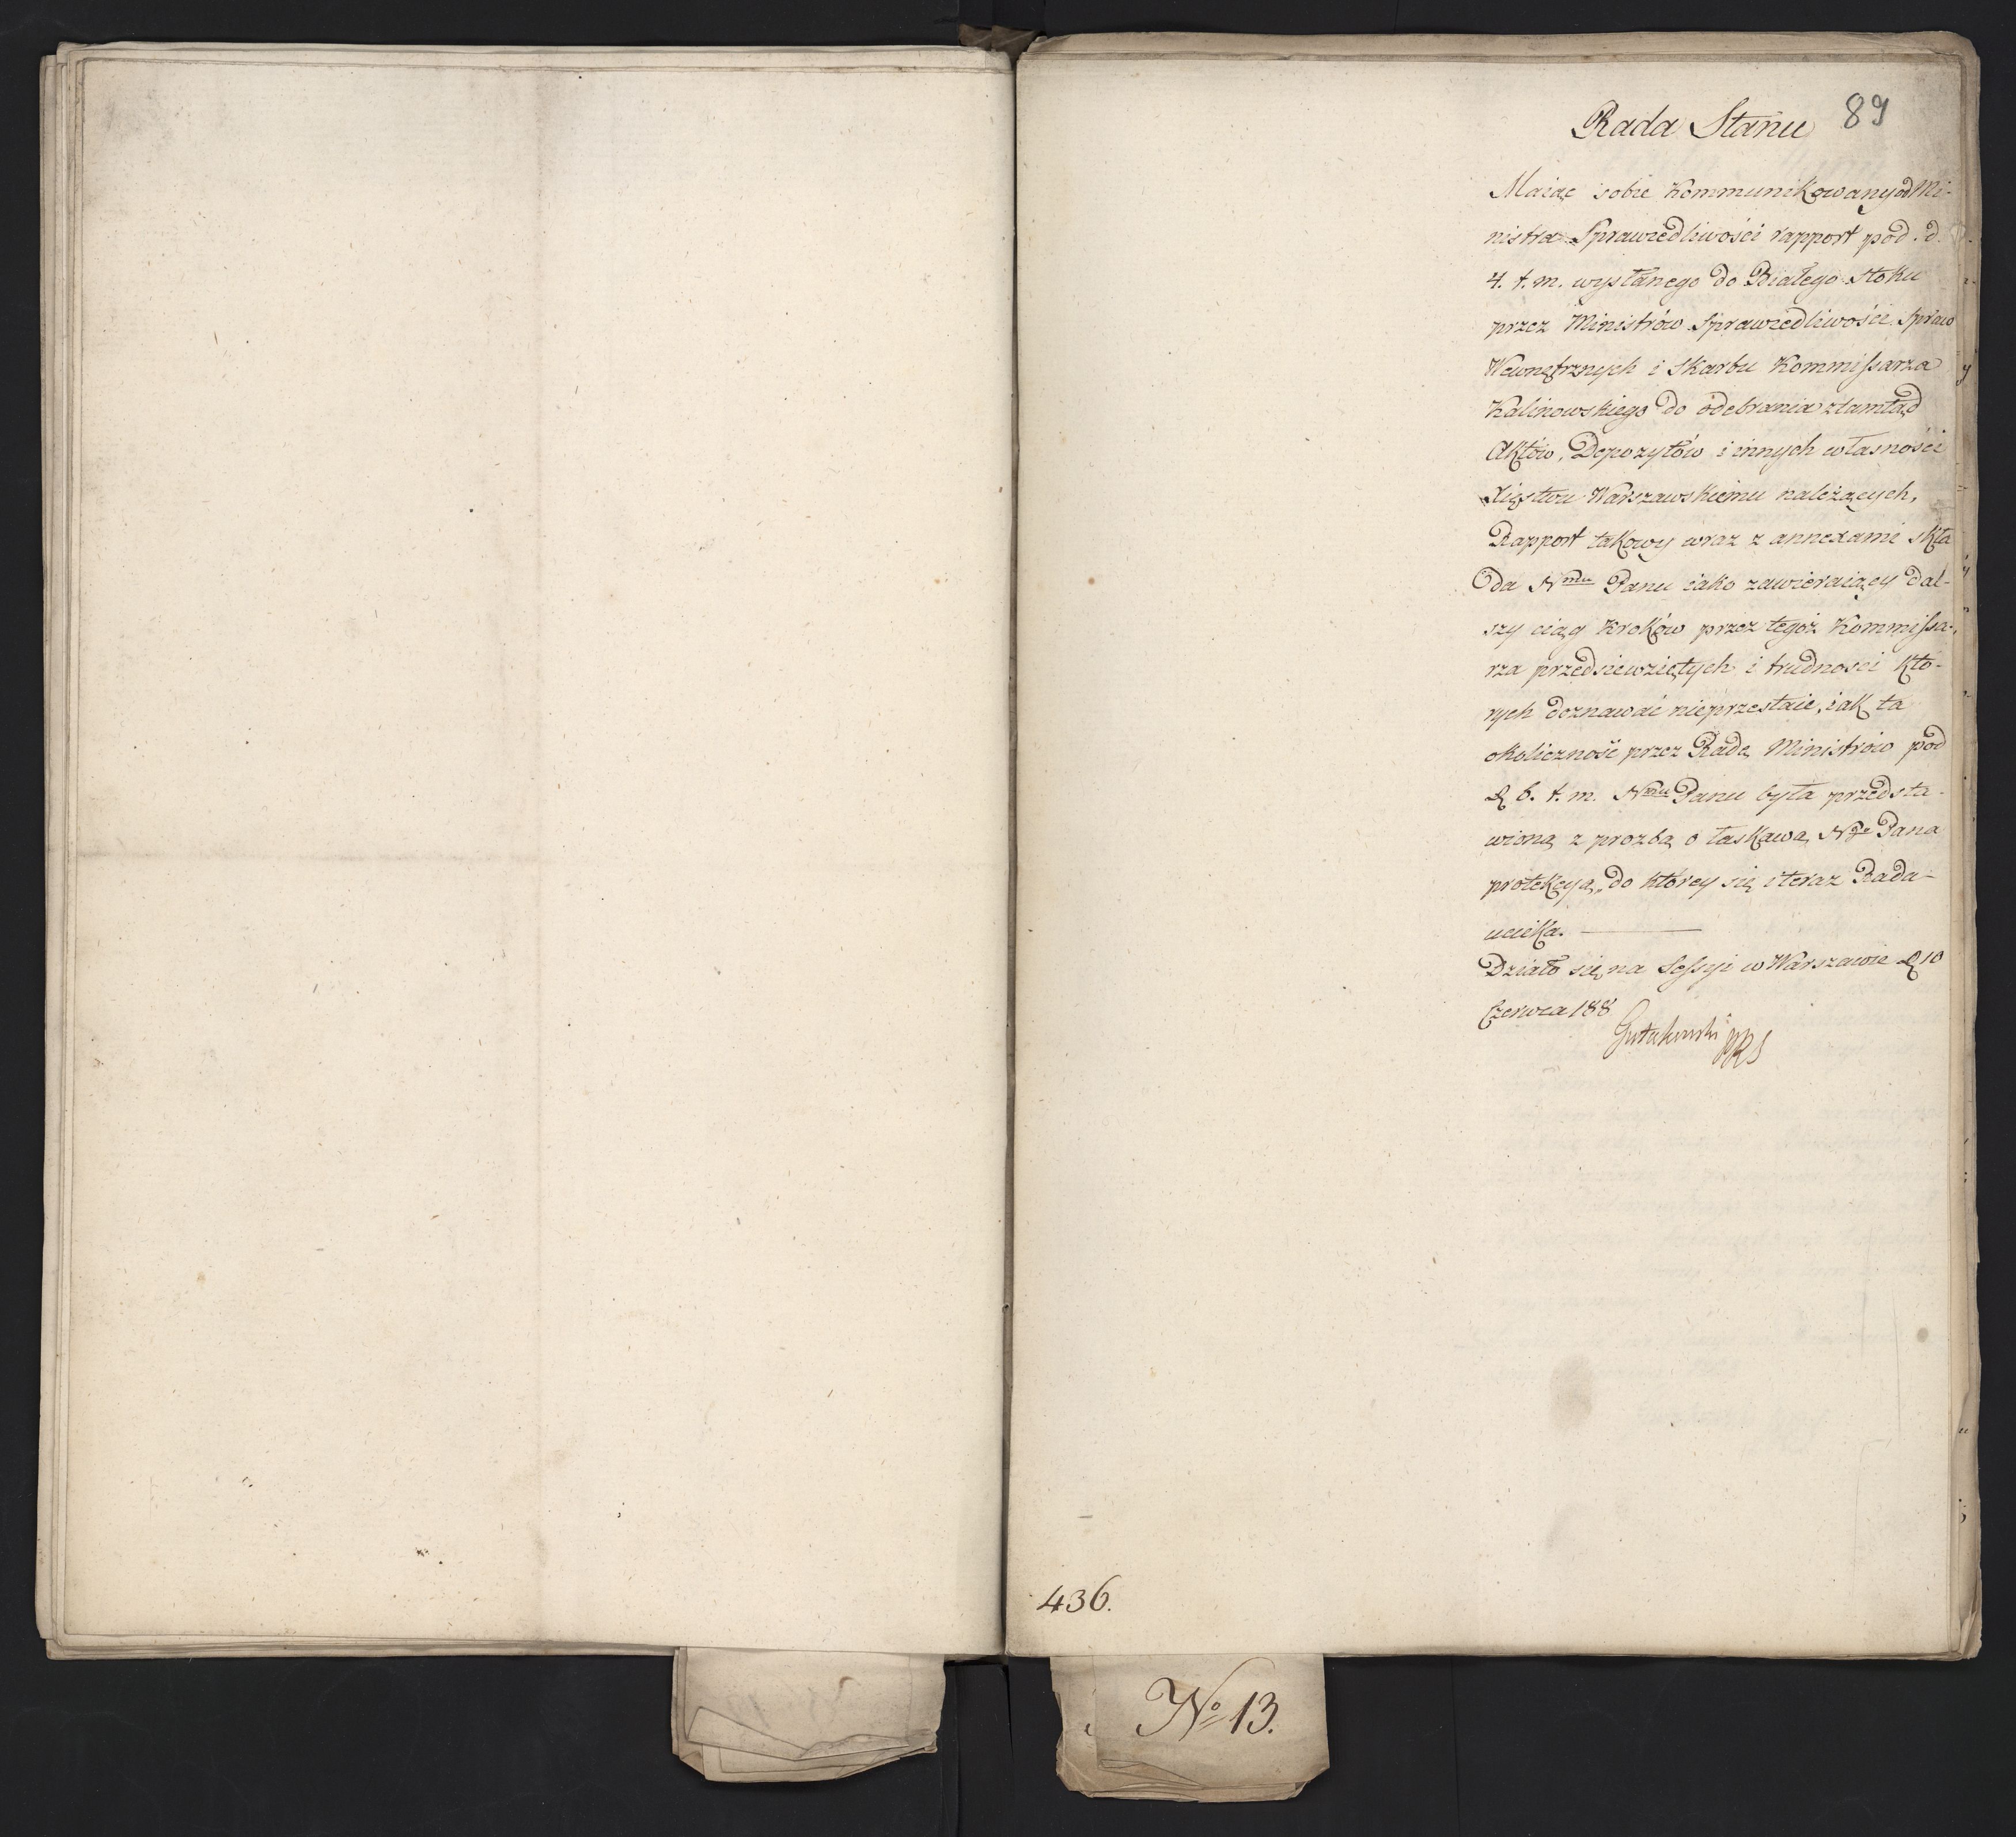 89
Rada Stanu
Maiąc sobie kommunikowany od Mi-
nistra Sprawiedliwości rapport pod. d.
4. t. m. wysłanego do Białego-stoku
przez Ministrów Sprawiedliwości Spraw
Wewnętrznych i Skarbu Kommissarza
Kalinowskiego do odebrania ztamtąd
Aktów, Depozytów i innych własności
Xięstwu Warszawskiemu należących,
Rapport takowy wraz z annexami skła
da Nmu Panu iako zawieraiący dal-
szy ciąg kroków przez tegoż Kommissa-
rza przedsiewziętych i trudnosci któ-
rych doznawać nieprzestaie, iak ta
okoliczność przez Radę Ministrów pod
D. 6. t. m. Nmu Panu była przedsta-
wioną z prozbą o łaskawą Ngo Pana
protekcyą, do którey się i teraz Rada-
ucieka.
Działo się na Sessyi w Warszawie D. 10
Czerwca 188
Gutakowski PRS
436.
No 13.